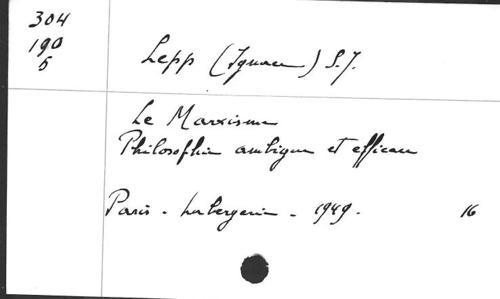 304
190
5
Lepp (Ignace) S.J.
Le Marxisme
Philosophie ambigue et efficace
Paris - Aubergerie - 1949. 16